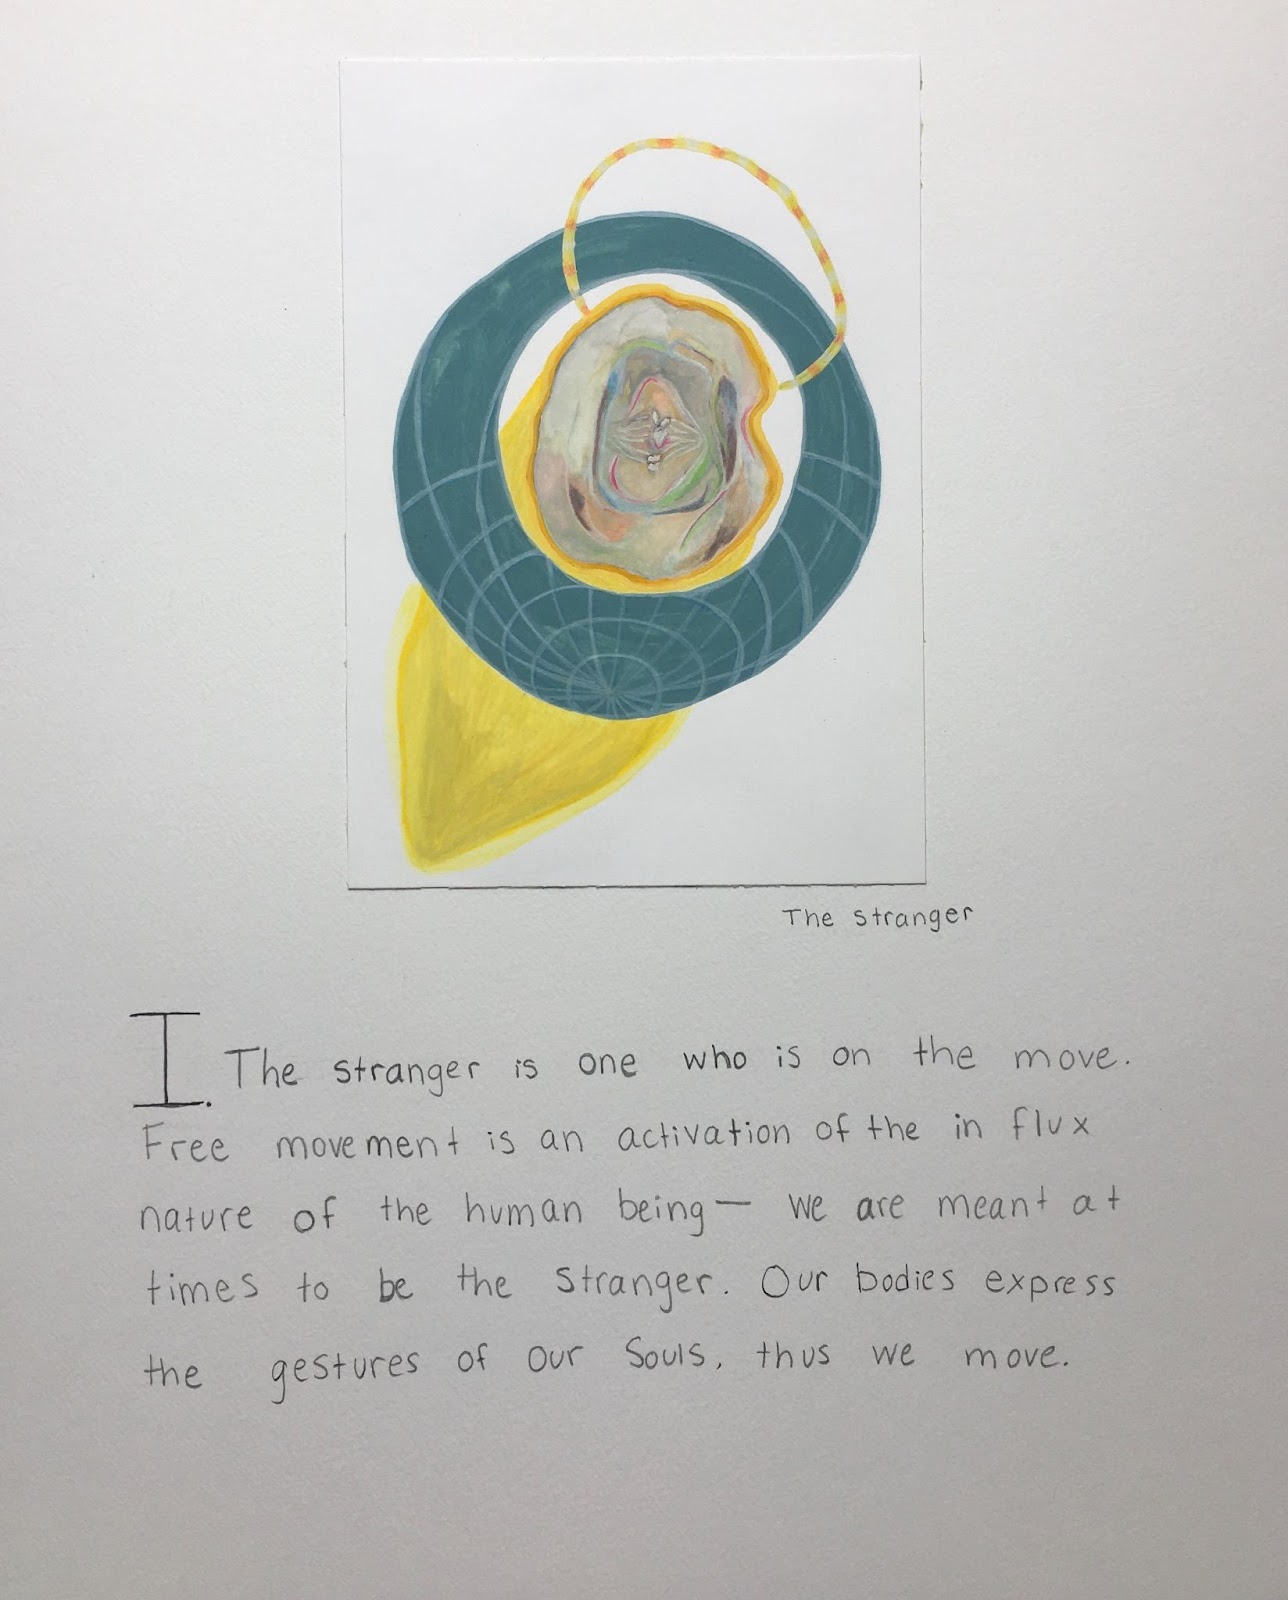 The stranger
I. The stranger is one who is on the move.
Free movement is an activation of the in flux
nature of the human being — we are meant at
times to be the stranger. Our bodies express
the gestures of our souls, thus we move.